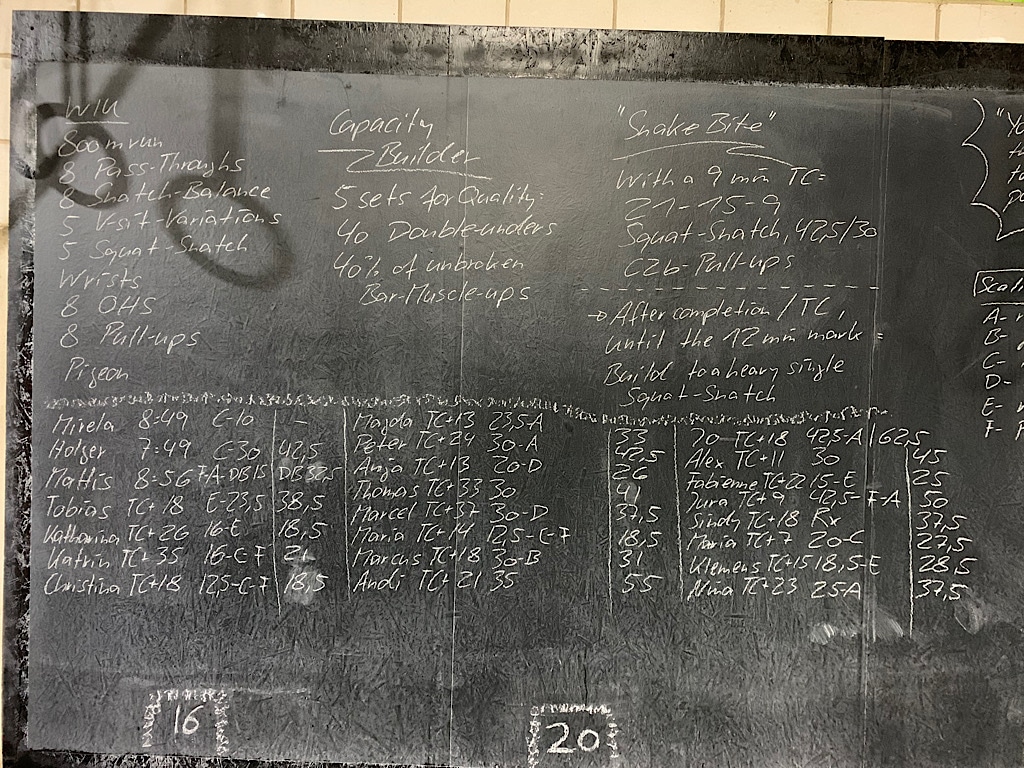 W/U
800m run
8 Pass-Throughs
8 Snatch-Balance
5 V-sit-Variations
5 Squat-Snatch
Wrists
8 OHS
8 Pull-ups
Pigeon
Capacity
Builder
5 sets for Quality:
40 Double-unders
40% of unbroken
Bar-Muscle-ups
"Snake Bite"
With a 9 min TC:
21-15-9
Squat-Snatch, 42,5/30
C2b-Pull-ups
→ After completion / TC,
until the 12 min mark:
Build to a heavy single
Squat-Snatch
Mirela 8:49 C-10 -
Holger 7:49 C-30 42,5
Mattis 8:56 FA-DB15 DB32,5
Tobias TC+18 E-23,5 38,5
Katharina TC+26 16-E 18,5
Katrin TC+35 16-C-F 21
Christina TC+18 12,5-C-F 18,5
Magda TC+13 23,5-A 33
Peter TC+24 30-A 42,5
Anja TC+13 20-D 26
Thomas TC+33 30 41
Marcel TC+37 30-D 37,5
Maria TC+14 12,5-C-F 18,5
Marcus TC+18 30-B 31
Andi TC+21 35 55
Jo TC+18 42,5-A 62,5
Alex TC+11 30 45
Fabienne TC+22 15-E 25
Jura TC+9 42,5-F-A 50
Sindy TC+18 Rx 37,5
Maria TC+7 20-C 27,5
Klemens TC+15 18,5-E 28,5
Nina TC+23 25-A 37,5
16
20
"Yo
Scali
A-
B-
C-
D-
E-
F-